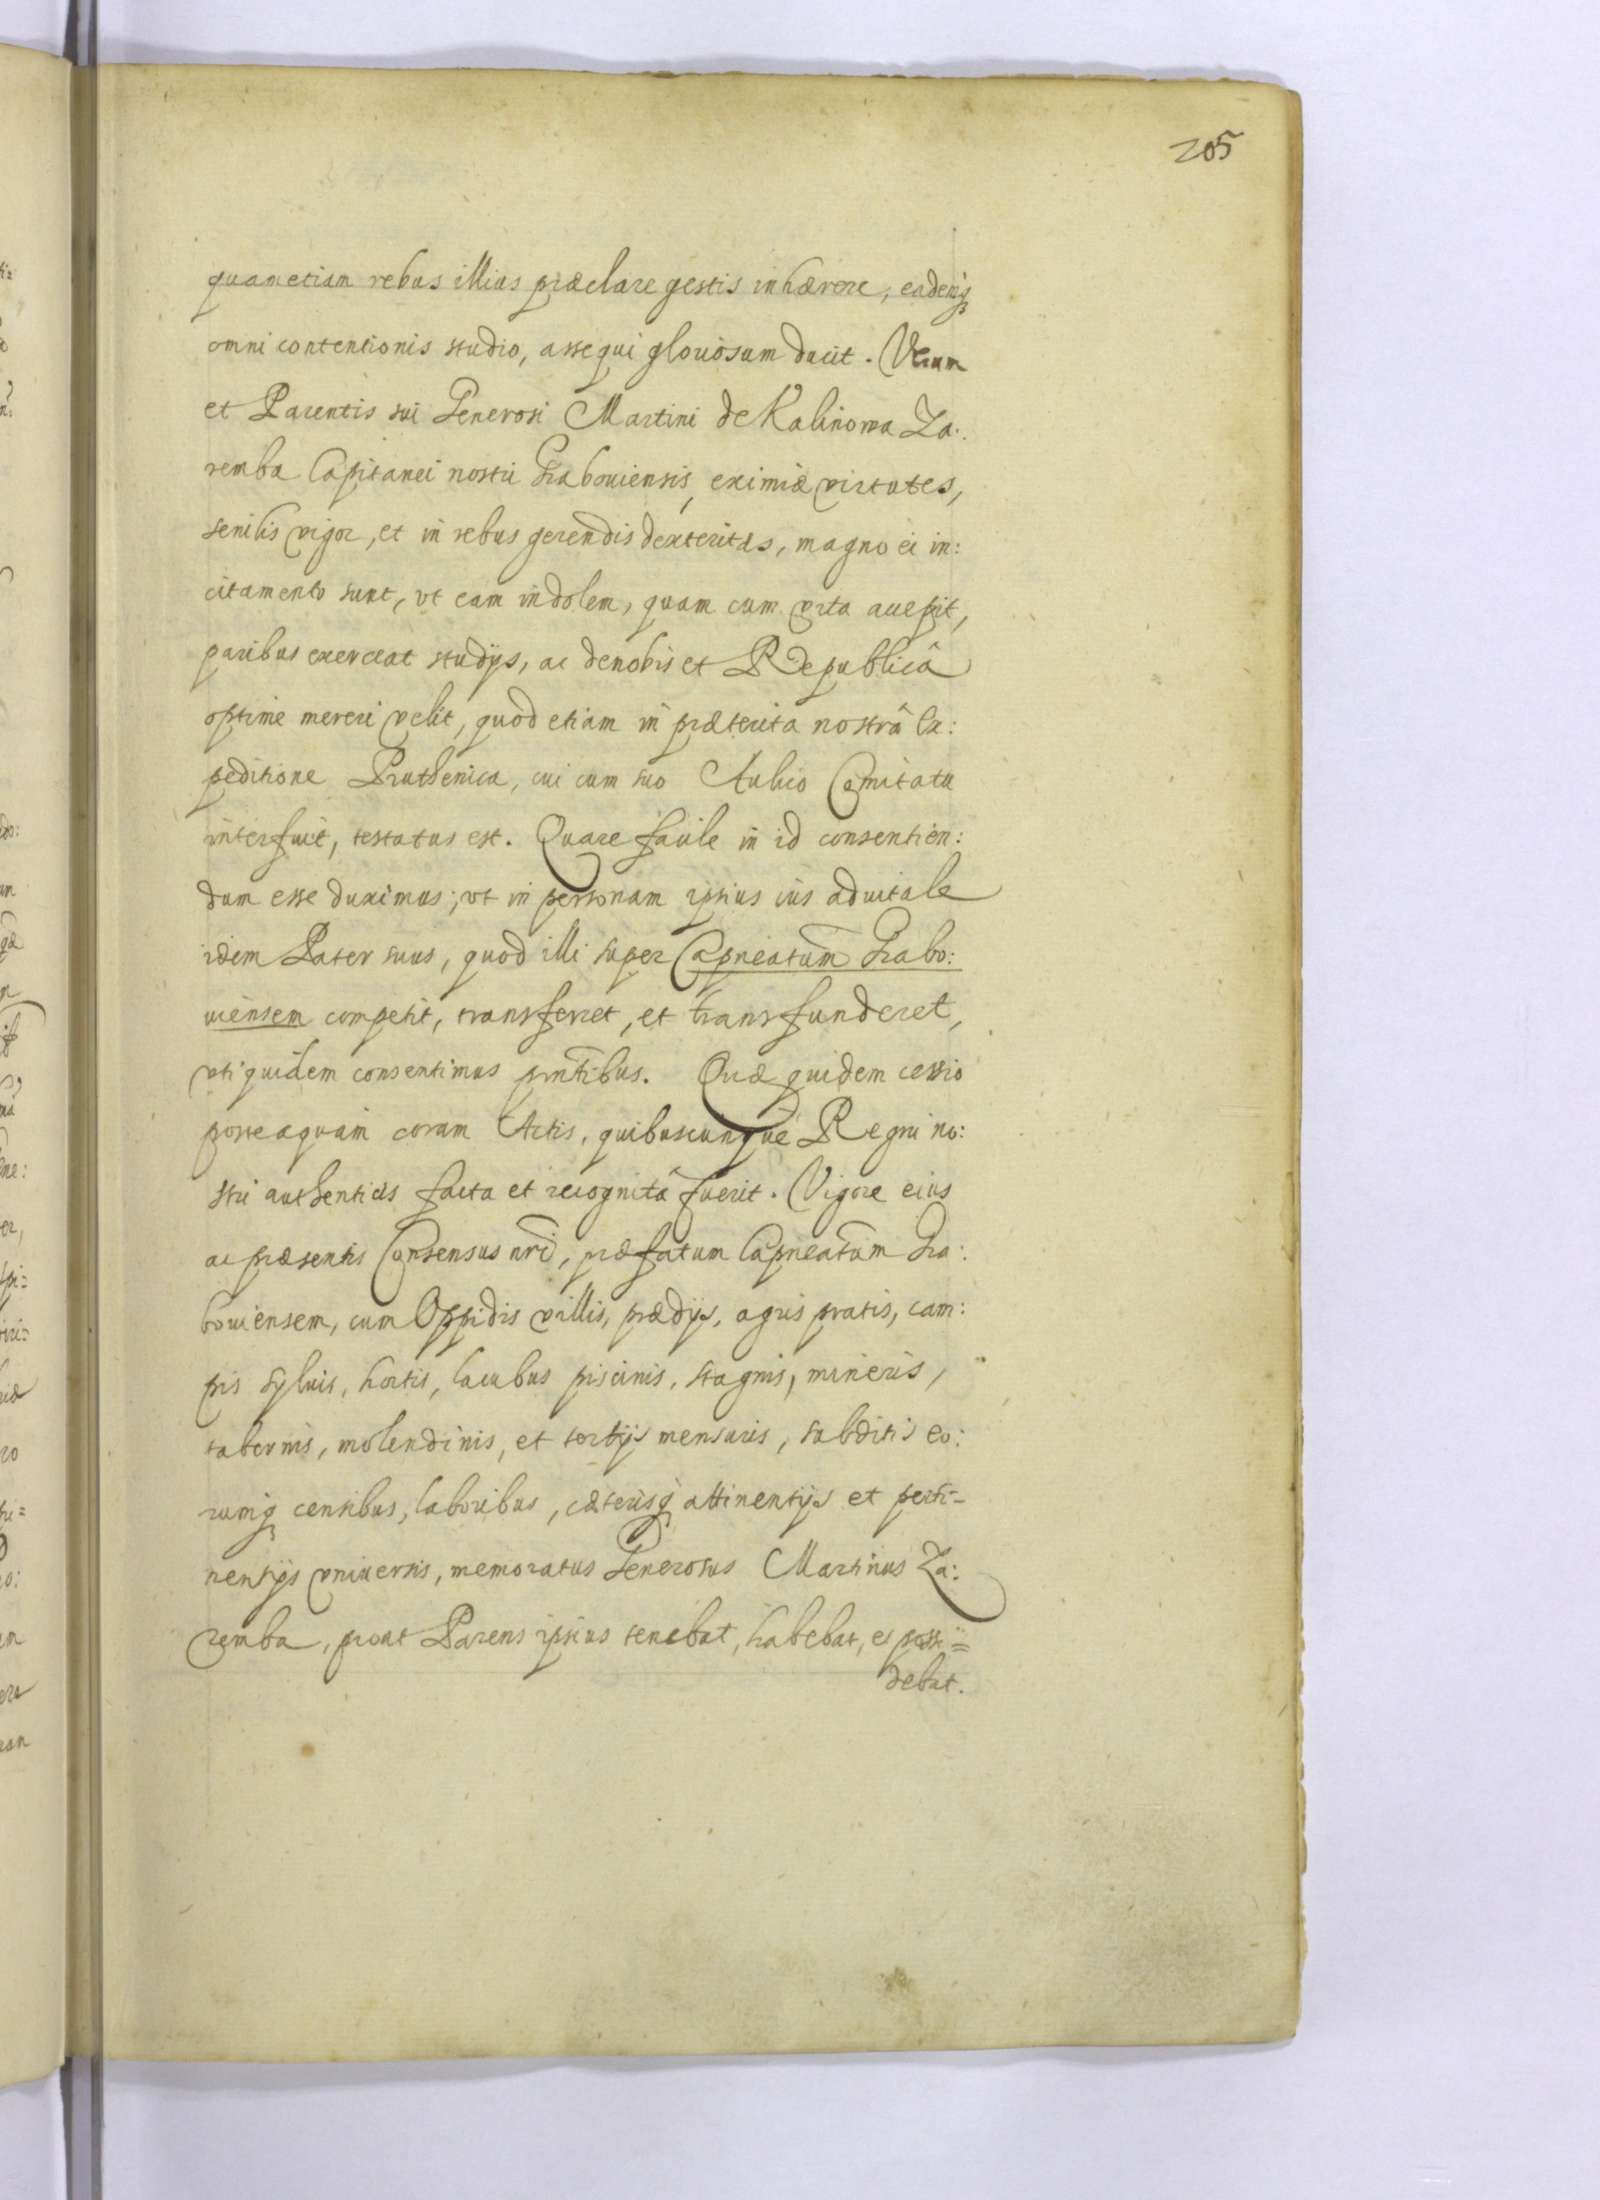 205
quam etiam rebus illius præclare gestis inhærere, eademq́
omni contentionis studio, assequi gloriosum ducit. Verum
et Parentis sui Generosi Martini de Kalinowa Za:
remba Capitanei nostri Graboviensis, eximiæ virtutes,
senilis vigor, et in rebus gerendis dexteritas, magno ei in:
citamento sunt, vt eam indolem, quam cum vita accepit,
paribus exerceat studijs, ac de nobis et Republicâ
optime mereri velit, quod etiam in præterita nostrâ Ex:
peditione Pruthenica, cui cum suo Aulico Comitatu
interfuit, testatus est. Quare facile in id consentien:
dum esse duximus; vt in personam ipsius ius aduitale
idem Pater suus, quod illi super Capneatum̃ Grabo:
uiensem competit, transferret, et transfunderet,
vti quidem consentimus pnt̃ibus. Quæ quidem cessio
posteaquàm coram Actis, quibuscunque Regni no:
stri authenticis facta et recognitâ fuerit. Vigore eius
ac præsentis Consensus nr̃i, præfatum Capneatum̃ Gra:
bouiensem, cum Oppidis villis, prædijs, agris pratis, cam:
pis syluis, hortis, lacubus piscinis, stagnis, mineris,
tabernis, molendinis, et tertijs mensuris, subditis eo:
rumq́ censibus, laboribus, cæterisq́ attinentijs et perti-
nentijs vniuersis, memoratus Generosus Martinus Za:
remba, prout Parens ipsius tenebat, habebat, et possi=
debat.